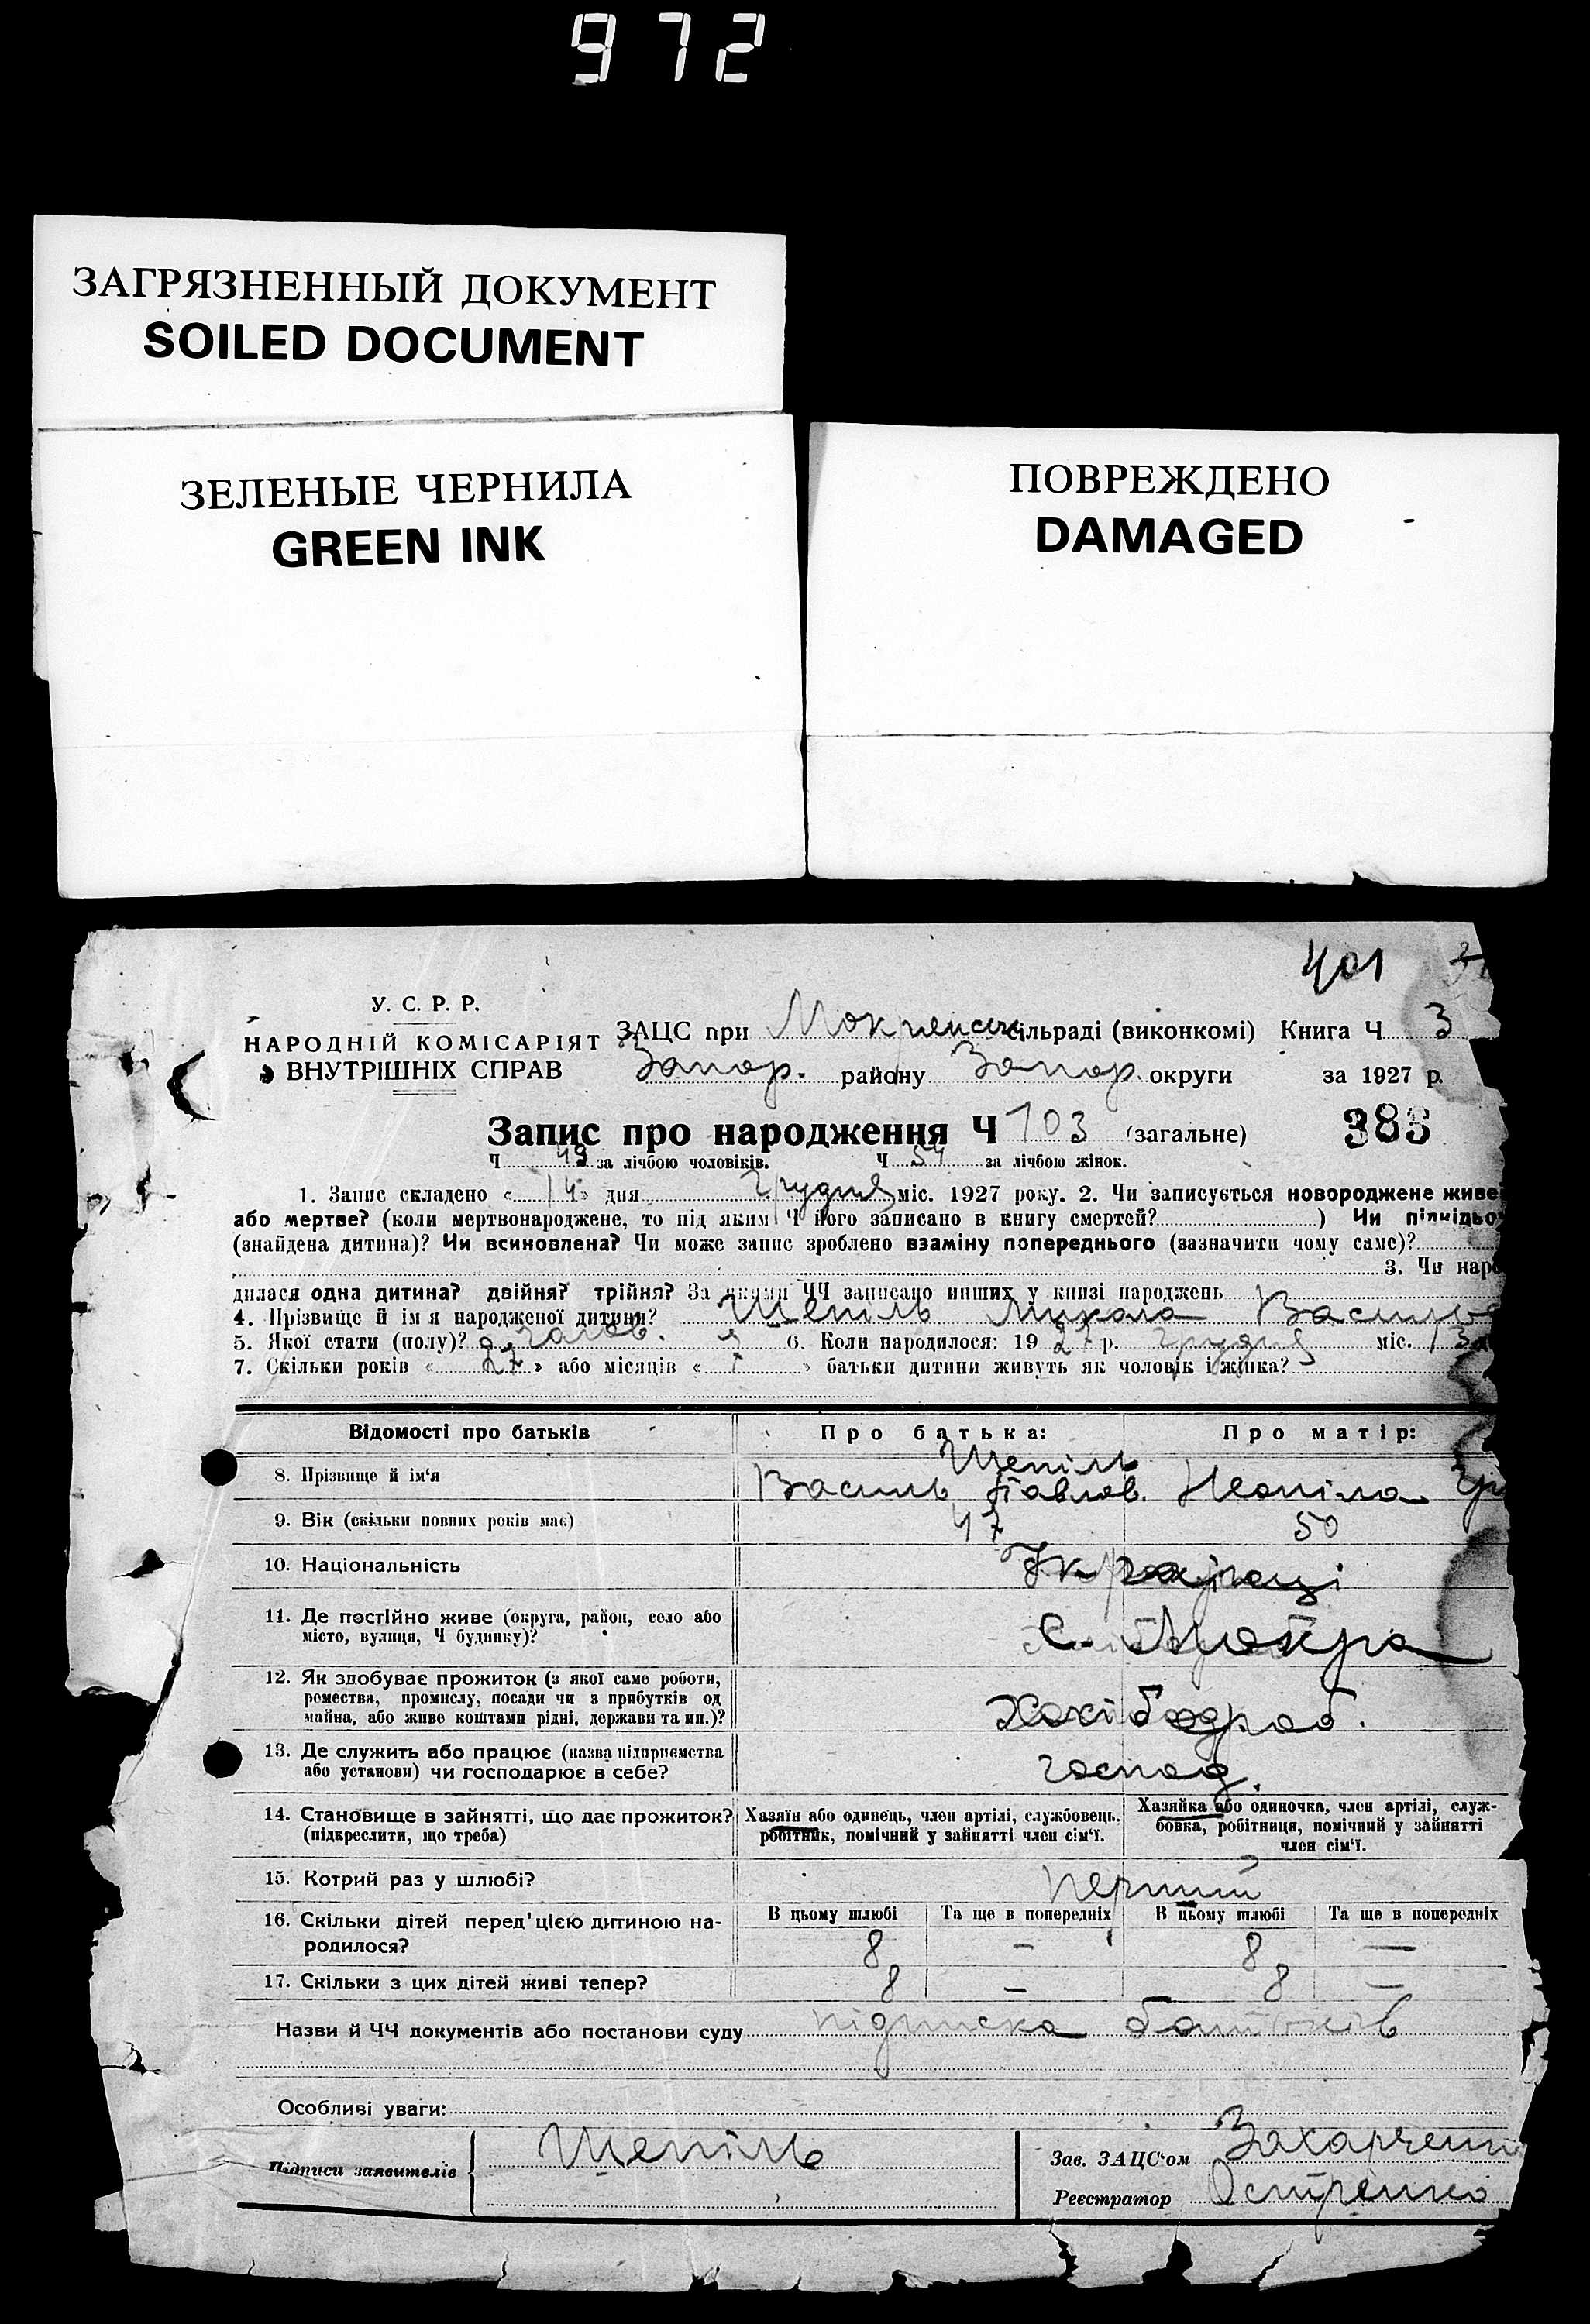 972
ЗАГРЯЗНЕННЫЙ ДОКУМЕНТ
SOILED DOCUMENT
ЗЕЛЕНЫЕ ЧЕРНИЛА
GREEN INK
ПОВРЕЖДЕНО
DAMAGED
401
У. С. Р. Р.
НАРОДНІЙ КОМІСАРІЯТ
ВНУТРІШНІХ СПРАВ
ЗАЦС при Мокрянськ сільраді (виконкомі) Книга Ч 3
Запор. району Запор. округи за 1927 р.
Запис про народження Ч 103 (загальне) 383
Ч 49 за лічбою чоловіків. Ч 54 за лічбою жінок.
1. Запис складено «14» дня грудня міс. 1927 року. 2. Чи записується новороджене живе
або мертве? (коли мертвонароджене, то під яким Ч його записано в книгу смертей? ) Чи підкідьо
(знайдена дитина)? Чи всиновлена? Чи може запис зроблено взаміну попереднього (зазначити чому саме)?
3. Чи наро
дилася одна дитина? двійня? трійня? За якими ЧЧ записано инших у книзі народжень
4. Прізвище й ім я народженої дитини? Щепіль Микола Василь
5. Якої стати (полу)? чолов. 6. Коли народилося: 19 27 р. грудня міс. 13
7. Скільки років « 27 » або місяців « » батьки дитини живуть як чоловік і жінка?
Відомості про батьків Про батька: Про матір:
8. Прізвище й ім‘я Щепіль
Василь Павлов. Неоніла
9. Вік (скільки повних років має) 47 50
10. Національність Украјнці
11. Де постійно живе (округа, район, село або
місто, вулиця, Ч будинку)? с. Мокра
12. Як здобуває прожиток (з якої саме роботи,
ремества, промислу, посади чи з прибутків од
майна, або живе коштами рідні, держави та ин.)? Хлібороб.
13. Де служить або працює (назва підприємства
або установи) чи господарює в себе? господ.
14. Становище в зайнятті, що дає прожиток?
(підкреслити, що треба)
Хазяїн або одинець, член артілі, службовець,
робітник, помічний у зайнятті член сім‘ї.
Хазяйка або одиночка, член артілі, служ-
бовка, робітниця, помічний у зайнятті
член сім‘ї.
15. Котрий раз у шлюбі? перший
16. Скільки дітей перед’цією дитиною на-
родилося?
В цьому шлюбі Та ще в попередніх В цьому шлюбі Та ще в попередніх
8 — 8 —
17. Скільки з цих дітей живі тепер? 8 — 8 —
Назви й ЧЧ документів або постанови суду підписка батьків
Особливі уваги:
Підписи заявителів Щепіль
Зав. ЗАЦС‘ом Захарченко
Реєстратор